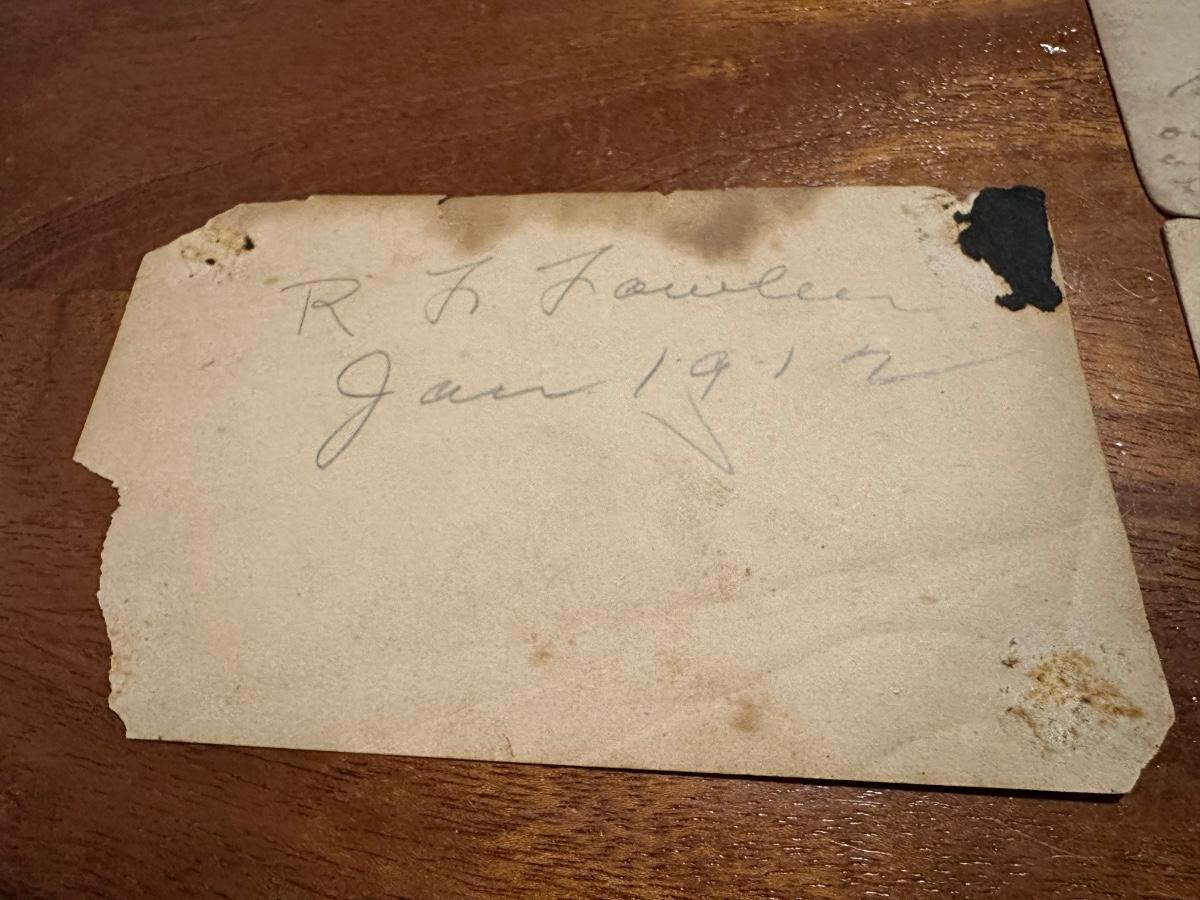 R F Fowler
Jan 1912